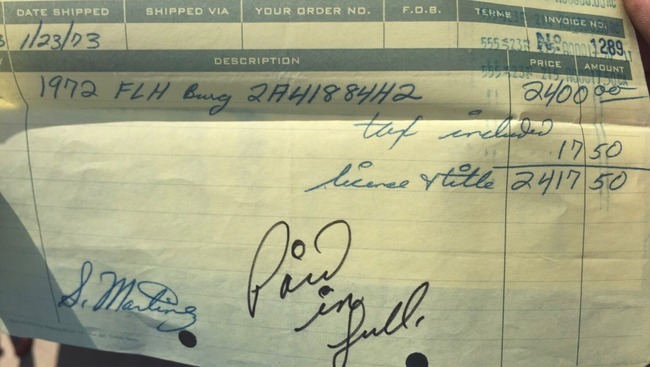 DATE SHIPPED SHIPPED VIA YOUR ORDER NO. F.O.B. TERMS INVOICE NO.
1/23/73 1289
DESCRIPTION PRICE AMOUNT
1972 FLH Burg 2A41884H2 2400 00
tax included
17 50
license & title 2417 50
Paid
in
full.
S. Martinez